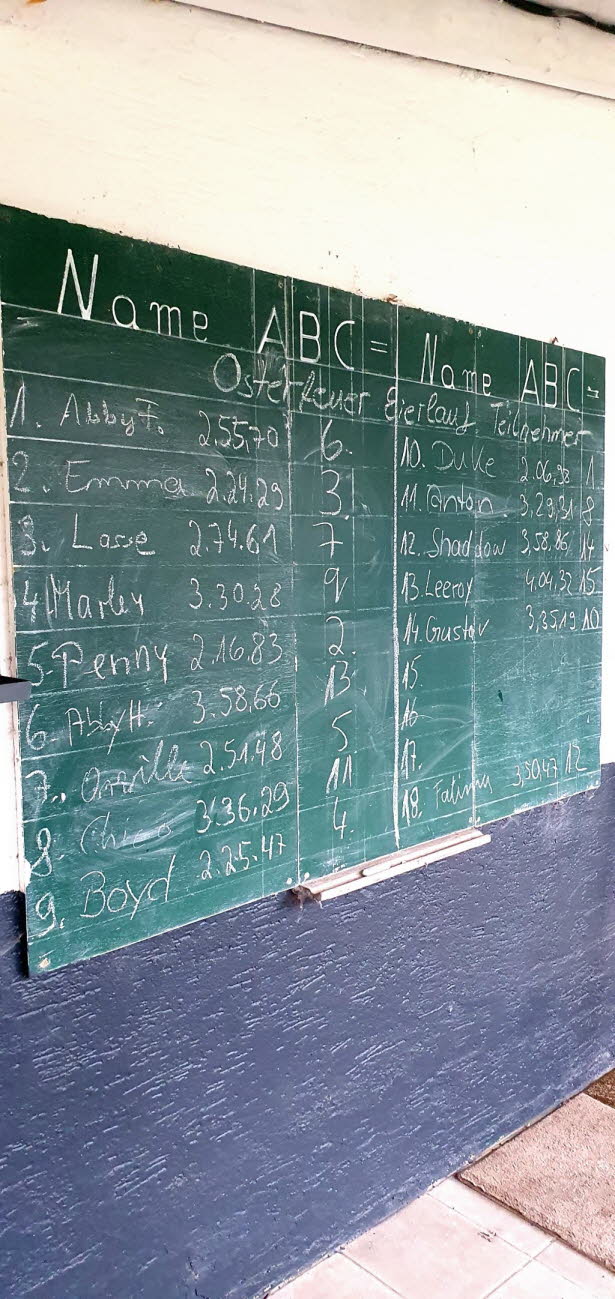 Name A B C = Name A B C =
Osterfeuer Eierlauf Teilnehmer
1. Abby F. 2.55,70 6.
2. Emma 2.24.29 3.
3. Lasse 2.74.61 7
4. Marley 3.30.28 9
5. Penny 2.16.83 2.
6. Abby H. 3.58.66 13
7. Orville 2.51.48 5
8. Chico 3.36.29 11
9. Boyd 2.25.47 4.
10. Duke 2.06,98 1
11. Anton 3,29,31 8
12. Shaddow 3,58,86 14
13. Leeroy 4.04.32 15
14. Gustav 3,35,19 10
15.
16.
17.
18. Fatima 3,50,47 12